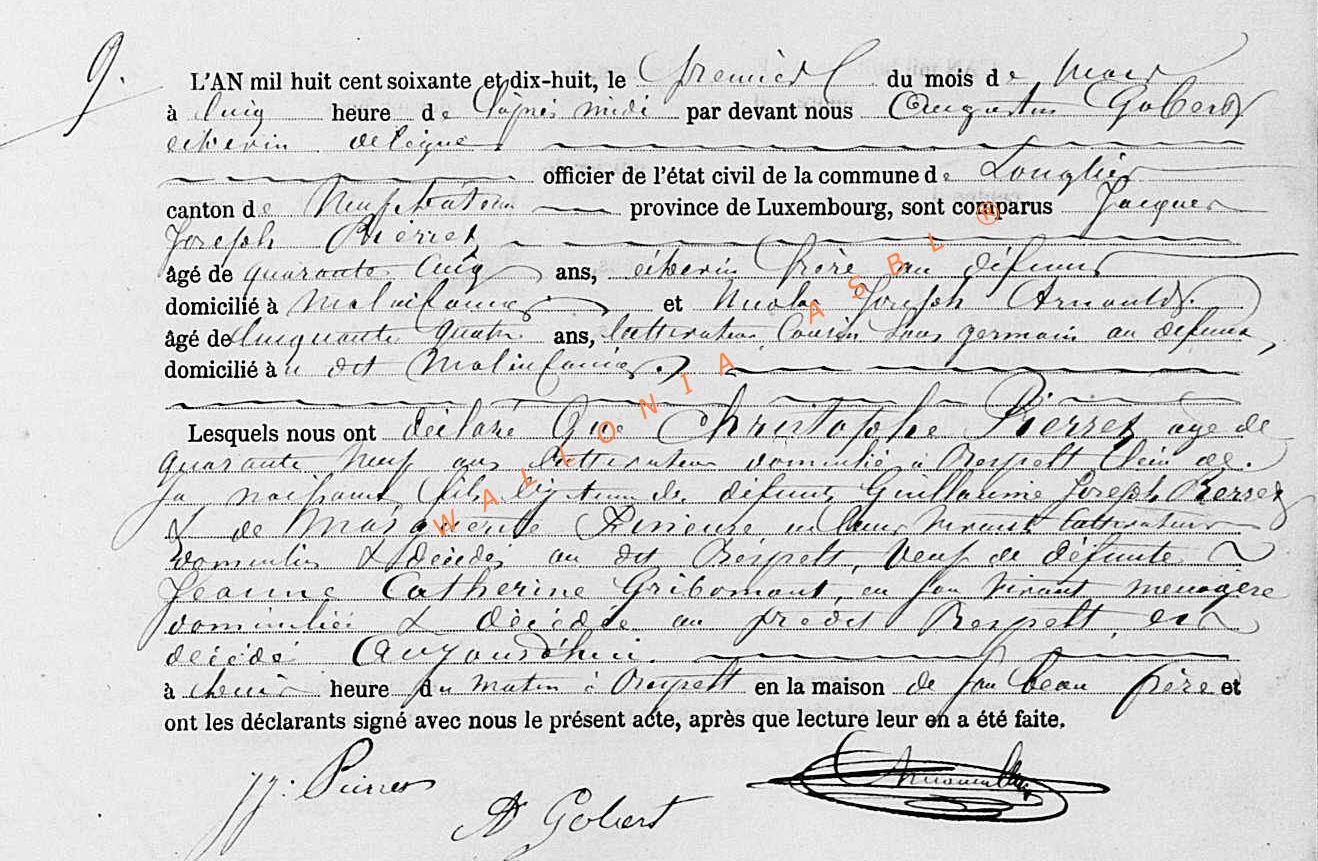 9.
L'AN mil huit cent soixante et dix-huit, le premier du mois de Mars
à cinq heure de l'après midi par devant nous Augustin Gobert
échevin délégué
officier de l'état civil de la commune de Longlier
canton de Neufchâteau province de Luxembourg, sont comparus Jacques
Joseph Pierret
âgé de quarante cinq ans, échevin frère au défunt
domicilié à Molinfaing et Nicolas Joseph Arnould
âgé de cinquante quatre ans, cultivateur, cousin sous germain au défunt,
domicilié à u dit Molinfaing.
Lesquels nous ont déclaré que Christophe Pierret agé de
quarante neuf ans cultivateur domicilié à Respelt lieu de
sa naissance, fils légitime de défunt Guillaume Joseph Pierret
& de Marguerite en leur vivant cultivateurs
domiciliés & décédés au dit Respelt, veuf de défunte
Jeanne Catherine Gribomont, en son vivant ménagère
domiciliée & décédée au predit Respelt, est
décédé aujourd'hui.
à heure du matin à Respelt en la maison de son beau frère et
ont les déclarants signé avec nous le présent acte, après que lecture leur en a été faite.
JJ. Pierret
A Gobert
Arnould
WALLONIA ASBL ®